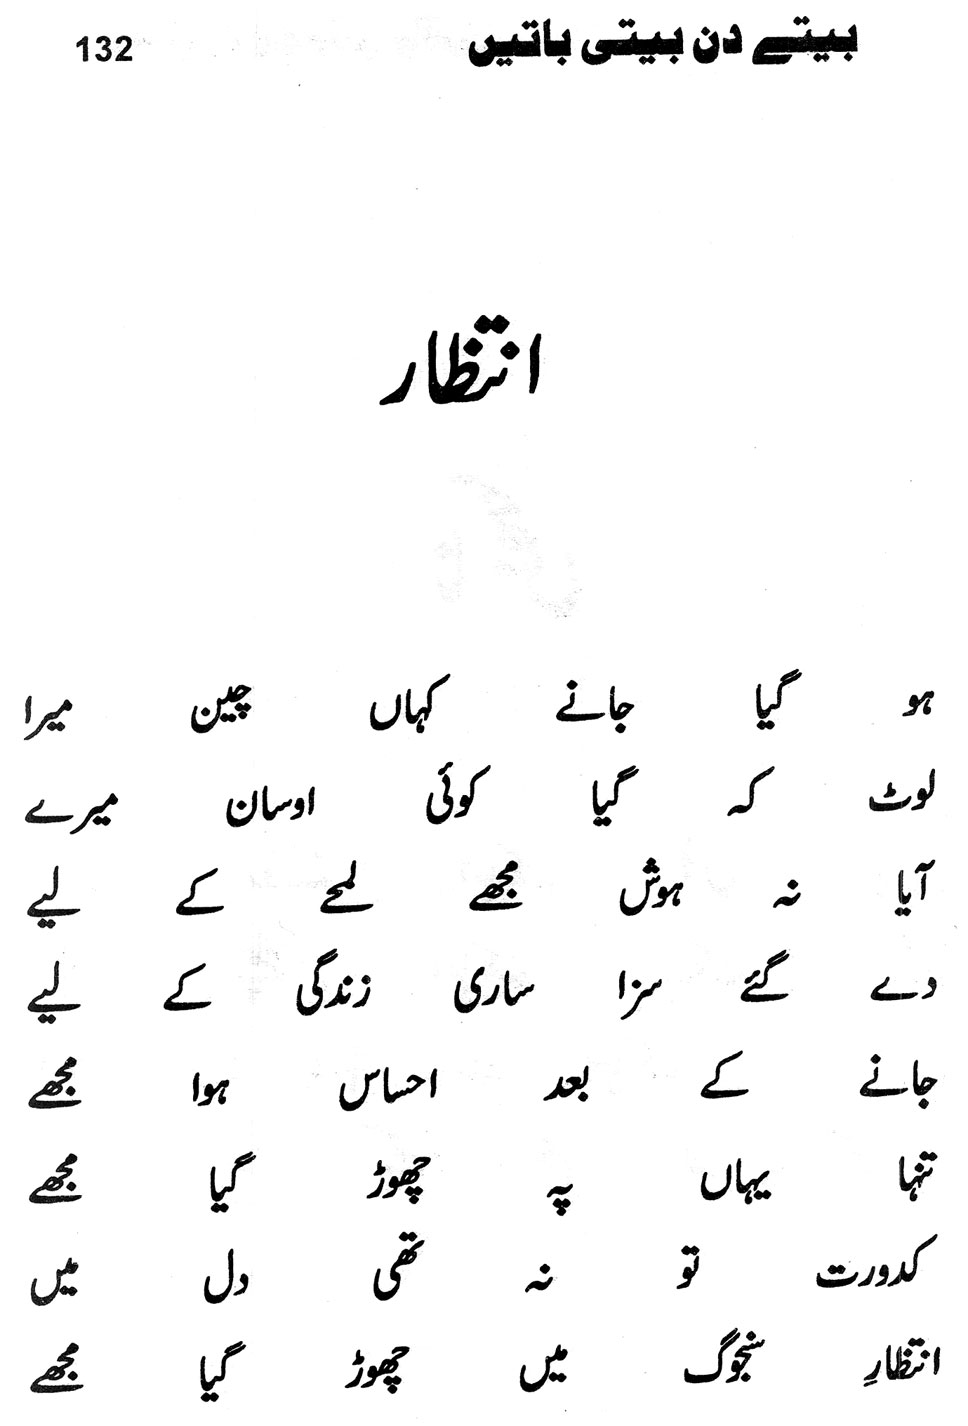 بیتے دن بیتی باتیں 132
انتظار
ہو گیا جانے کہاں چین میرا
لوٹ کہ گیا کوئی اوسان میرے
آیا نہ ہوش مجھے لمحے کے لیے
دے گئے سزا ساری زندگی کے لیے
جانے کے بعد احساس ہوا مجھے
تنہا یہاں پہ چھوڑ گیا مجھے
کدورت تو نہ تھی دل میں
انتظارِ سنجوگ میں چھوڑ گیا مجھے